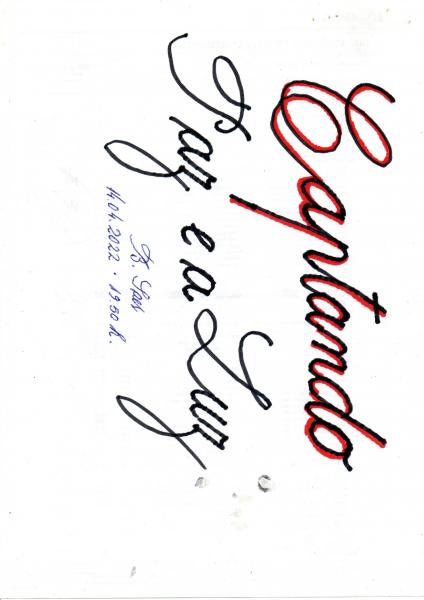 Captando
Paz e a Luz
14.04.2022 - 19:50 h.